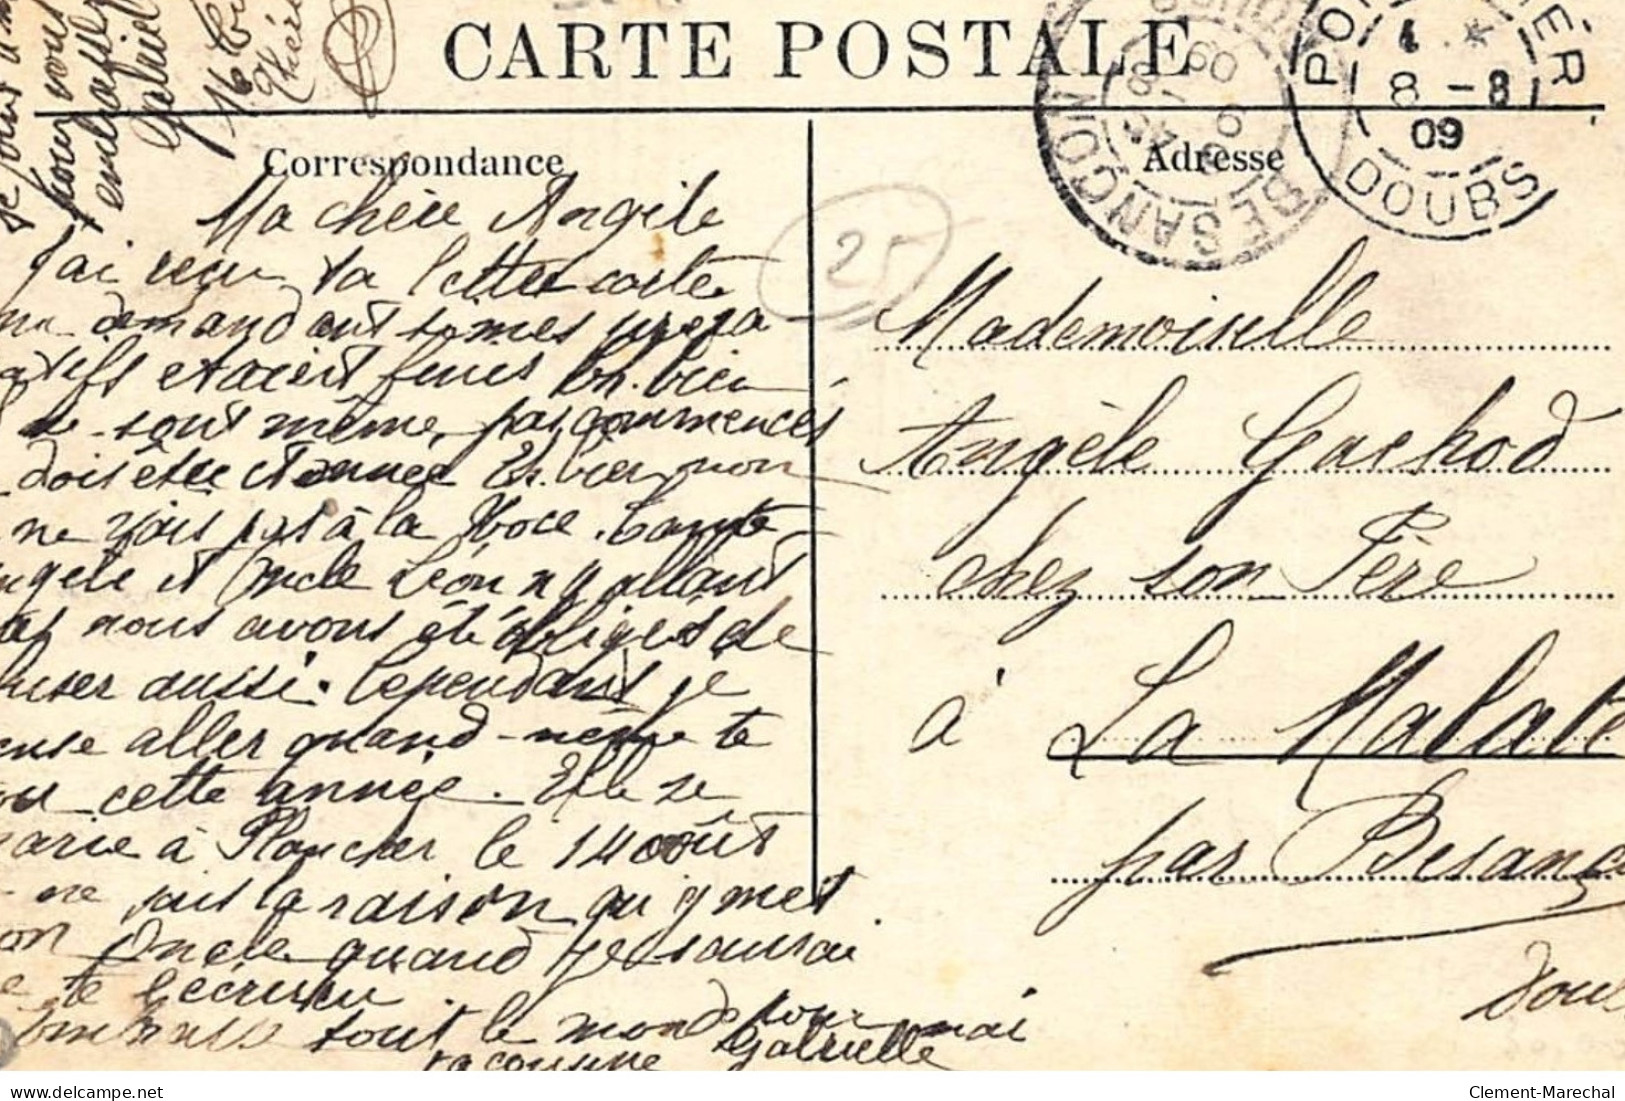 CARTE POSTALE
Correspondance
Adresse
Ma chère Angèle
J'ai reçu ta lettre carte
me demandant si mes prépa
ratifs étaient finis Eh. bien
ne sont même pas commencés
dois être étonnée Eh. bien non
ne vais pas à la Noce. Tante
Angèle et Oncle Léon n'y allant
pas nous avons été obligés de
refuser aussi. Cependant je
pense aller quand-même te
cette année. Elle se
marie à Plancher le 14 août
ne sais la raison qui y met
mon Oncle quand je saurai
je te l'écrirai
Embrasse tout le monde pour moi
ta cousine Gabrielle
pour vous
embrasser
Gabriel
25
Mademoiselle
Angèle Gachod
chez son Père
à La Malate
par Besanç
Doub
BESANÇON
DOUBS
8 - 8
09
Clement-Marechal